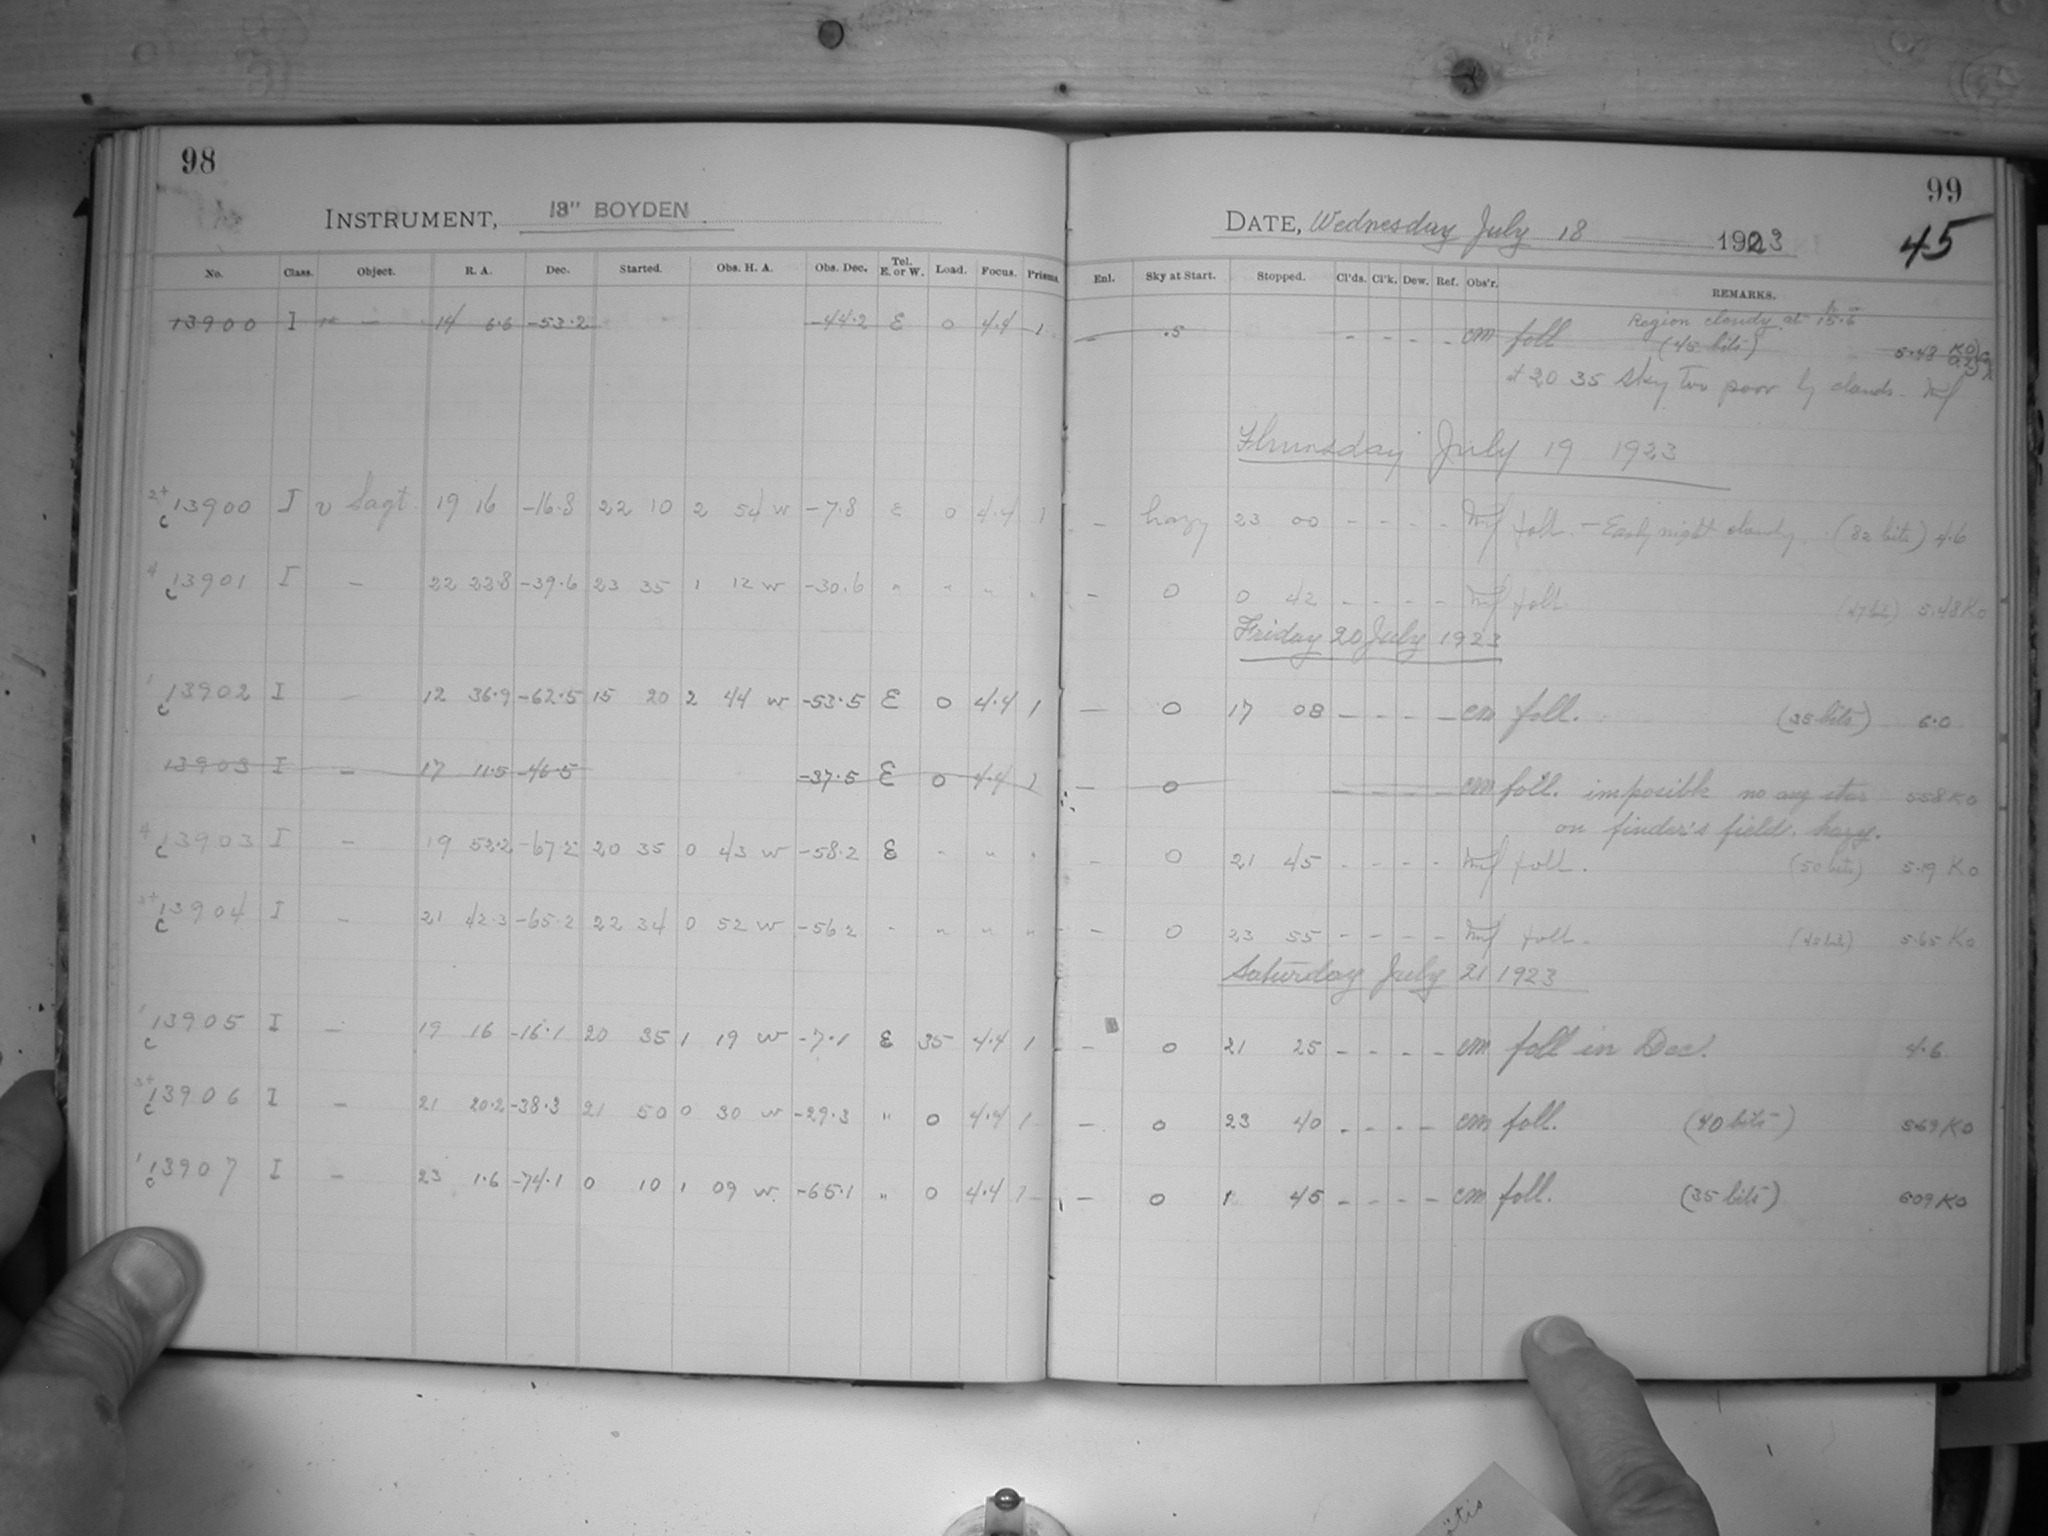 98
INSTRUMENT, 13" BOYDEN
No. Class. Object. R. A. Dec. Started. Obs. H. A. Obs. Dec. Tel. E. or W. Load. Focus. Prisms.
13900 I — 14 6.6 -53.2 -44.2 E 0 4.4 1
2+ c 13900 I v Sagt. 19 16 -16.8 22 10 2 54 w -7.8 E 0 4.4 1
4 c 13901 I — 22 22.8 -39.6 23 35 1 12 w -30.6 " " " "
1 c 13902 I — 12 36.9 -62.5 15 20 2 44 w -53.5 E 0 4.4 1
13903 I — 17 11.5 -46.5 -37.5 E 0 4.4 1
4 c 13903 I — 19 52.2 -67.2 20 35 0 43 w -58.2 E " " "
3+ c 13904 I — 21 42.3 -65.2 22 34 0 52 w -56.2 " " " " "
1 c 13905 I — 19 16 -16.1 20 35 1 19 w -7.1 E 35 4.4 1
3+ c 13906 I — 21 20.2 -38.3 21 50 0 30 w -29.3 " 0 4.4 1
1 c 13907 I — 23 1.6 -74.1 0 10 1 09 w. -65.1 " 0 4.4 1
99
45
DATE, Wednesday July 18 1923
Enl. Sky at Start. Stopped. Cl'ds. Cl'k. Dew. Ref. Obs'r. REMARKS.
Region cloudy at 15.6
— .5 - - - - cm foll (45 bits) 5.48 K0
at 20 35 Sky too poor by clouds.
Thursday July 19 1923
— hazy 23 00 - - - - foll. — Early night cloudy. (82 bits) 4.6
— 0 0 42 - - - - foll. 5.48 K0
Friday 20 July 1923
— 0 17 08 - - - - cm foll. (35 bits) 6.0
— 0 - - - - cm foll. imposible no any star 558 K0
on finder's field. hazy.
— 0 21 45 - - - - foll. (50 bits) 5.19 K0
— 0 23 55 - - - - foll. 5.65 K0
Saturday July 21 1923
— 0 21 25 - - - - cm foll in Dec. 4.6
— 0 23 40 - - - - cm foll. (40 bits) 569 K0
— 0 1 45 - - - - cm foll. (35 bits) 609 K0